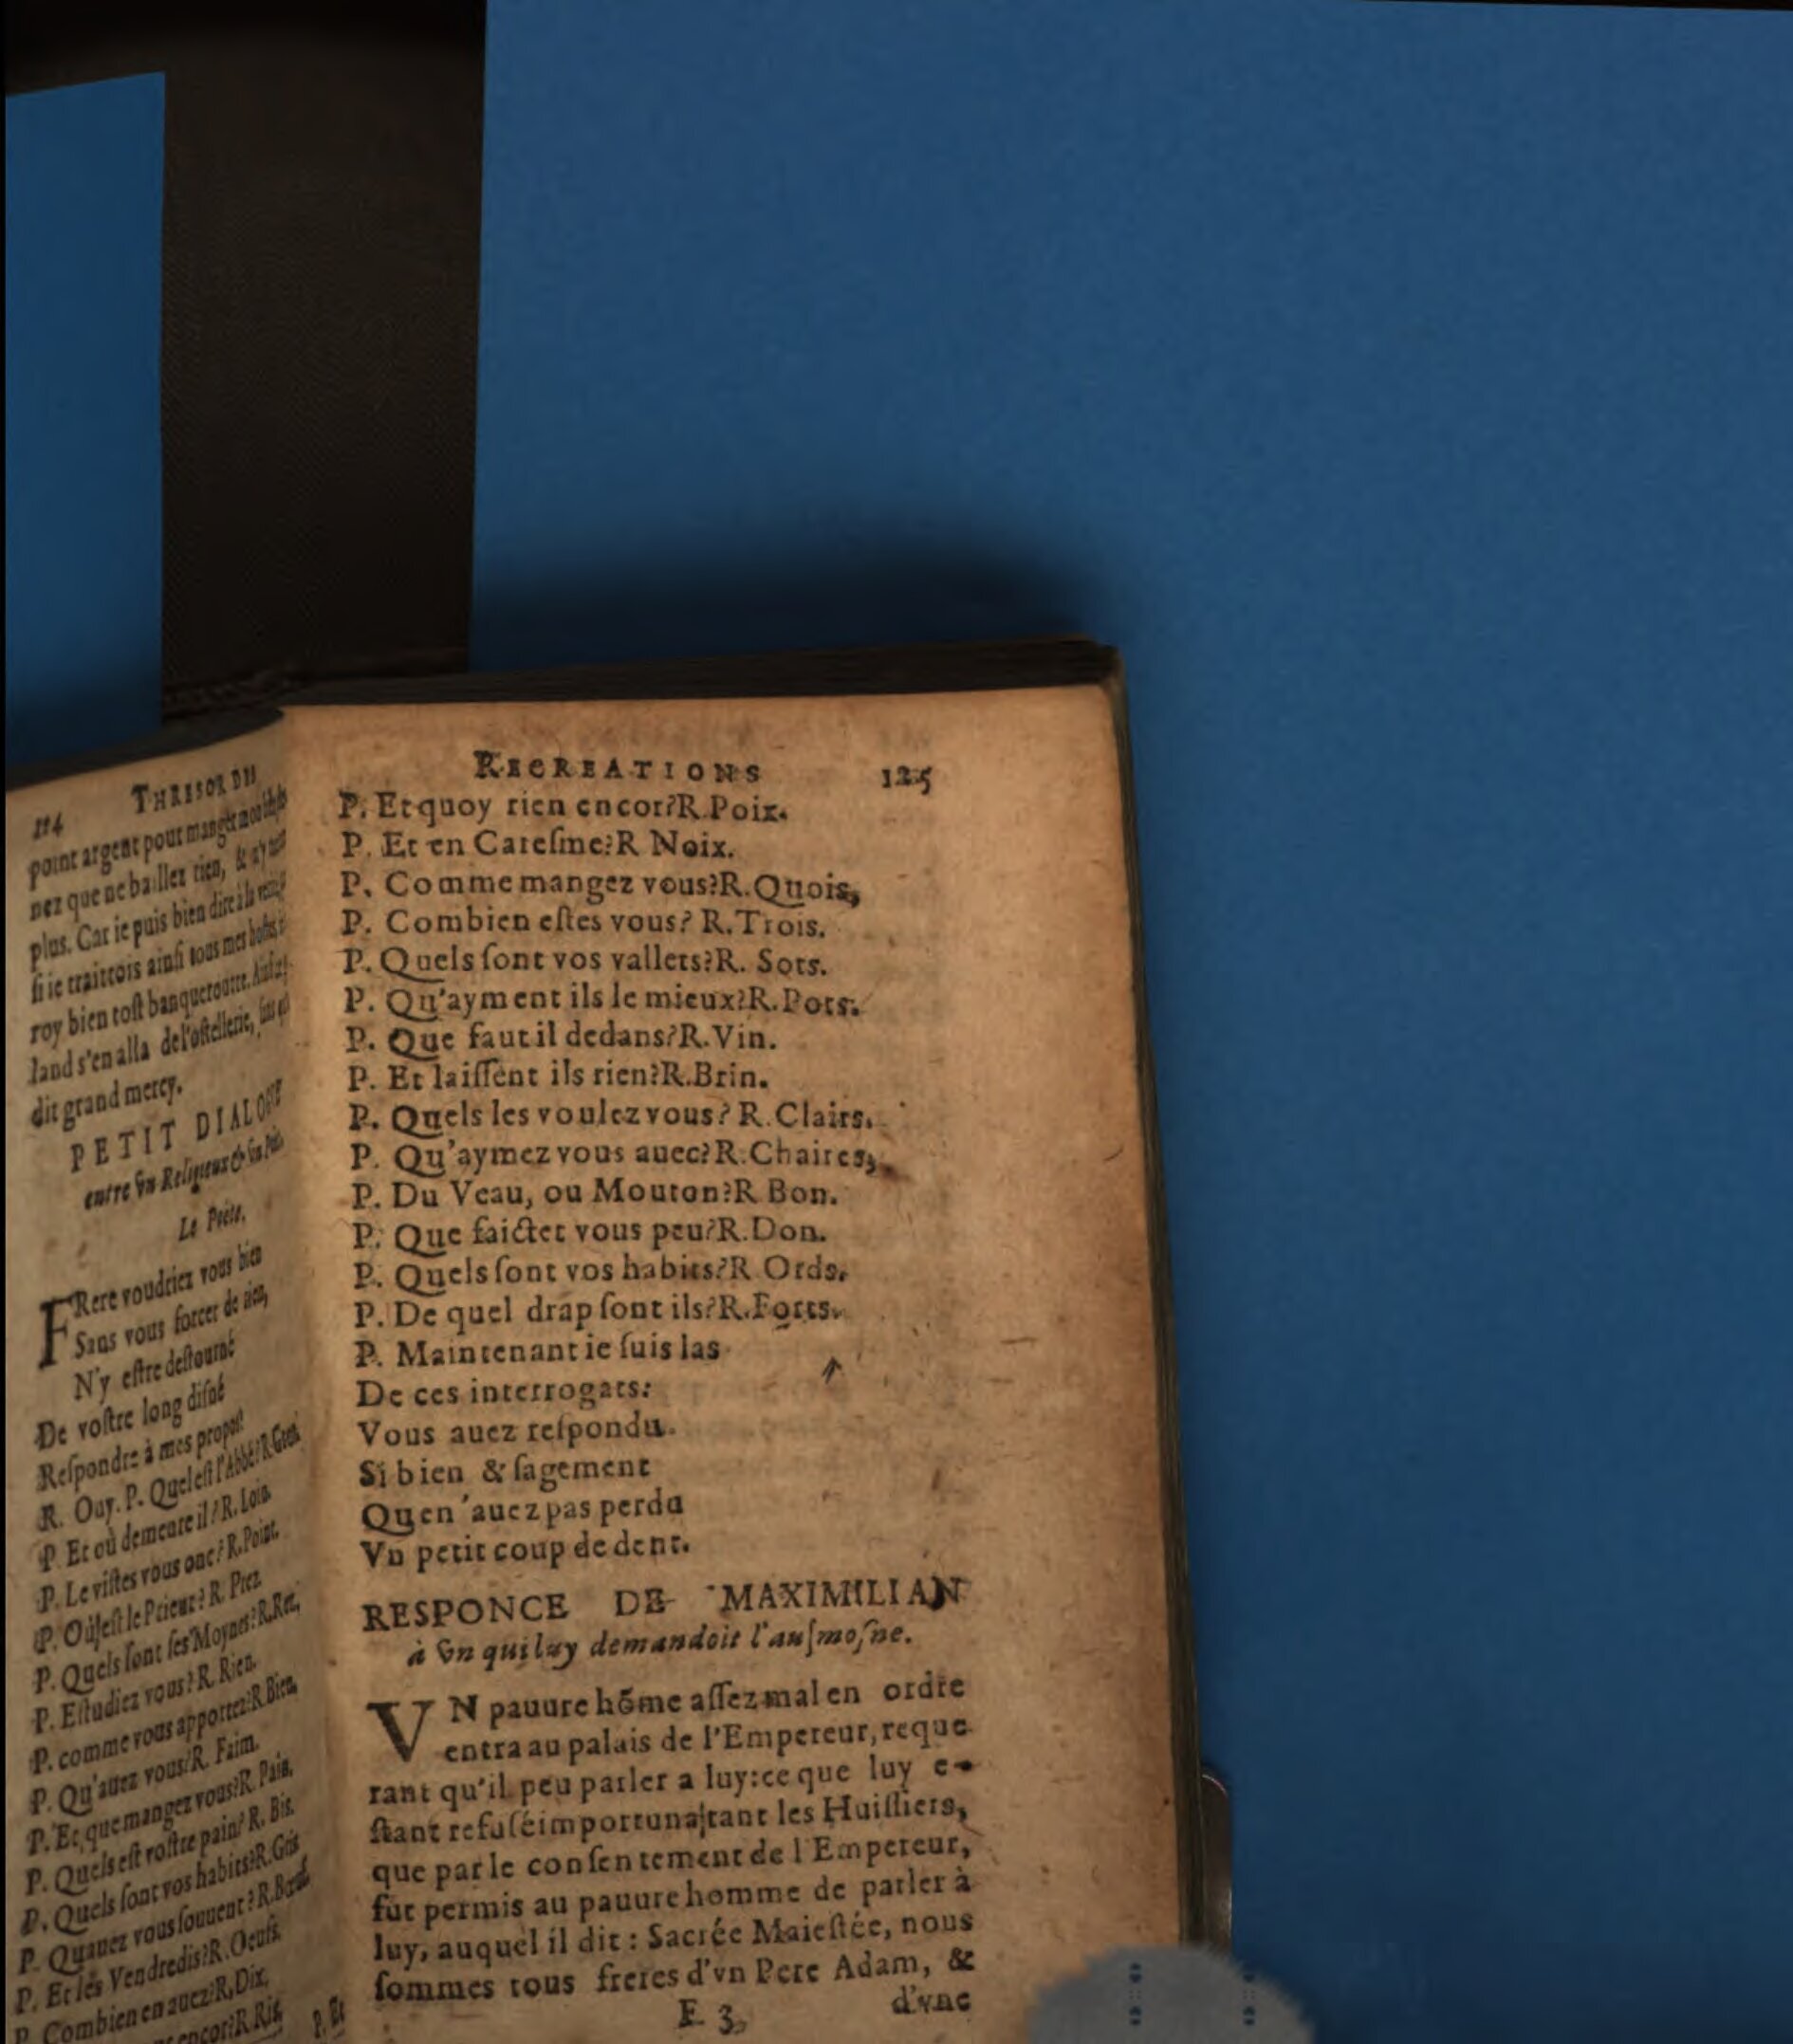 114 THRESOR DES
point argent pour manger
nez que ne baillez rien, & n'y
plus. Car ie puis bien dire à la verité
si ie traittois ainsi tous mes hostes,
roy bien tost banqueroutte.
land s'en alla de l'ostellerie,
dit grand mercy.
PETIT DIALOGUE
entre vn Religieux & vn
Le Poëte.
FRere voudriez vous bien
Sans vous forcer de rien,
N'y estre destourné
De vostre long disné
Respondre à mes propos?
R. Ouy. P. Quel est l'Abbé? R. Gros.
P. Et où demeure il? R. Loin.
P. Le vistes vous onc? R. Point.
P. Où est le Prieur? R. Prez.
P. Quels sont ses Moynes? R. Rez.
P. Estudiez vous? R. Rien.
P. comme vous apportez? R Bien.
P. Qu'auez vous? R. Faim.
P. Et que mangez vous? R. Pain.
P. Quels est vostre pain? R. Bis.
P. Quels sont vos habits? R. Gris
P. Quauez vous souuent? R. Bœuf.
P. Et lés Vendredis? R. Oeufs.
P Combien en auez? R. Dix.
encor? R Ris.
P. Et
RECREATIONS 125
P. Et quoy rien encor? R. Poix.
P. Et en Caresme? R Noix.
P. Comme mangez vous? R. Quois,
P. Combien estes vous? R. Trois.
P. Quels sont vos vallets? R. Sots.
P. Qu'ayment ils le mieux? R. Pots.
P. Que faut il dedans? R. Vin.
P. Et laissent ils rien? R. Brin.
P. Quels les voulez vous? R. Clairs.
P. Qu'aymez vous auec? R. Chaires,
P. Du Veau, ou Mouton? R Bon.
P. Que faictet vous peu? R. Don.
P. Quels sont vos habits? R Ords.
P. De quel drap sont ils? R. Forts.
P. Maintenant ie suis las
De ces interrogats:
Vous auez respondu.
Si bien & sagement
Quen'auez pas perdu
Vn petit coup de dent.
RESPONCE DE MAXIMILIAN
à vn qui luy demandoit l'ausmosne.
VN pauure hõme assez mal en ordre
entra au palais de l'Empereur, reque
rant qu'il peu parler a luy: ce que luy e-
stant refusé importuna tant les Huissiers,
que par le consentement de l'Empereur,
fut permis au pauure homme de parler à
luy, auquel il dit : Sacrée Maiestée, nous
sommes tous freres d'vn Pere Adam, &
F 3, d'vne